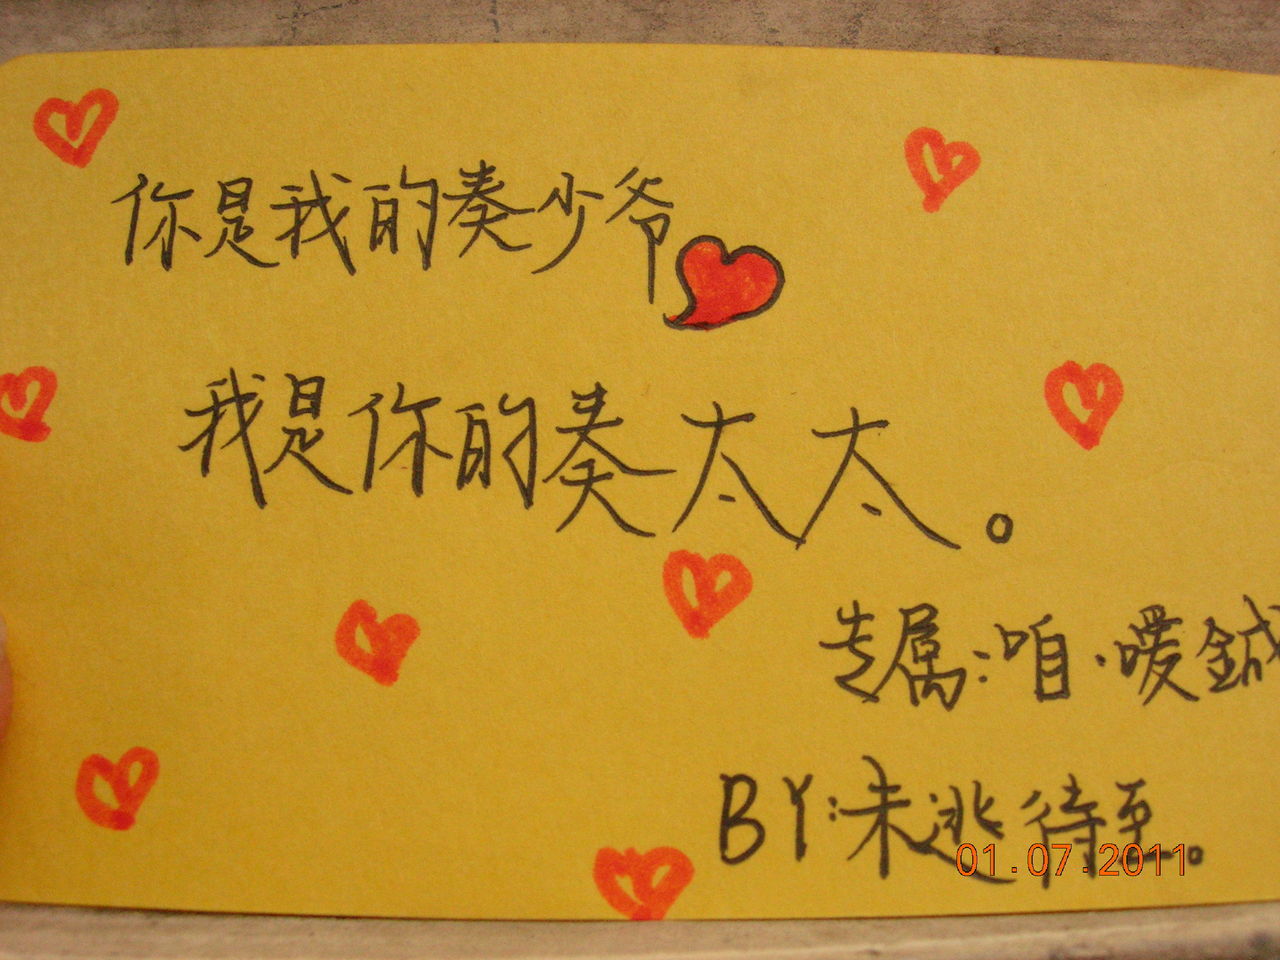 你是我的奏少爷
我是你的奏太太。
专属:咱·暖鍼
BY:未逃待
01.07.2011